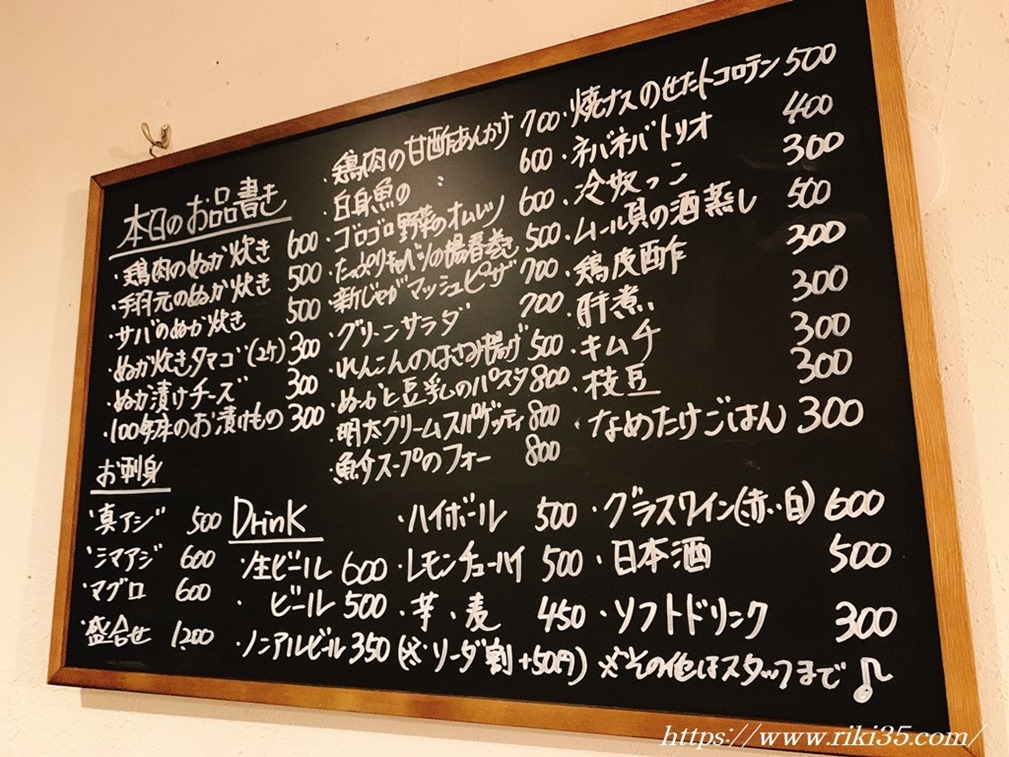 本日のお品書き
・鶏肉のぬか炊き 600
・手羽元のぬか炊き 500
・サバのぬか炊き 500
・ぬか炊きタマゴ(2ケ) 300
・ぬか漬けチーズ 300
・100年床のお漬けもの 300
・鶏肉の甘酢あんかけ 700
・白身魚の 〃 600
・ゴロゴロ野菜のオムレツ 600
・たっぷりキャベツの揚春巻き 500
・新じゃがマッシュピザ 700
・グリーンサラダ 700
・れんこんのはさみ揚げ 500
・ぬかと豆乳のパスタ 800
・明太クリームスパゲッティ 800
・魚介スープのフォー 800
・焼ナスのせたトコロテン 500
・ネバネバトリオ 400
・冷奴っこ 300
・ムール貝の酒蒸し 500
・鶏皮酢 300
・肝煮 300
・キムチ 300
・枝豆 300
・なめたけごはん 300
お刺身
・真アジ 500
・シマアジ 600
・マグロ 600
・盛合せ 1,200
Drink
・生ビール 600
・ビール 500
・ノンアルビール 350
・ハイボール 500
・レモンチューハイ 500
・芋、麦 450
(※ソーダ割+50円)
・グラスワイン(赤、白) 600
・日本酒 500
・ソフトドリンク 300
※その他はスタッフまで♪
https://www.riki35.com/